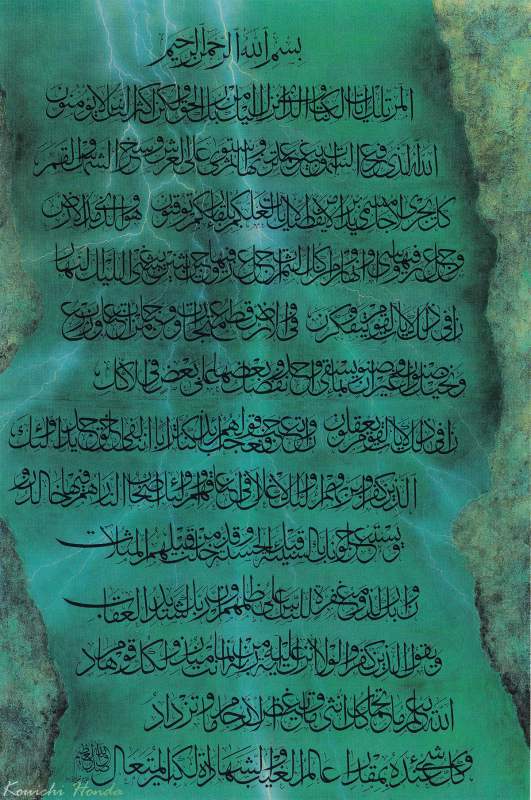 بسم الله الرحمن الرحيم
المر تلك آيات الكتاب والذي أنزل إليك من ربك الحق ولكن أكثر الناس لا يؤمنون
الله الذي رفع السموات بغير عمد ترونها ثم استوى على العرش وسخر الشمس والقمر
كل يجري لأجل مسمى يدبر الأمر يفصل الآيات لعلكم بلقاء ربكم توقنون وهو الذي مد الأرض
وجعل فيها رواسي وأنهارا ومن كل الثمرات جعل فيها زوجين اثنين يغشي الليل النهار
إن في ذلك لآيات لقوم يتفكرون وفي الأرض قطع متجاورات وجنات من أعناب وزرع
ونخيل صنوان وغير صنوان يسقى بماء واحد ونفضل بعضها على بعض في الأكل
إن في ذلك لآيات لقوم يعقلون وإن تعجب فعجب قولهم أئذا كنا ترابا أئنا لفي خلق جديد أولئك
الذين كفروا بربهم وأولئك الأغلال في أعناقهم وأولئك أصحاب النار هم فيها خالدون
ويستعجلونك بالسيئة قبل الحسنة وقد خلت من قبلهم المثلات
وإن ربك لذو مغفرة للناس على ظلمهم وإن ربك لشديد العقاب
ويقول الذين كفروا لولا أنزل عليه آية من ربه إنما أنت منذر ولكل قوم هاد
الله يعلم ما تحمل كل أنثى وما تغيض الأرحام وما تزداد
وكل شيء عنده بمقدار عالم الغيب والشهادة الكبير المتعال
Kouichi Honda